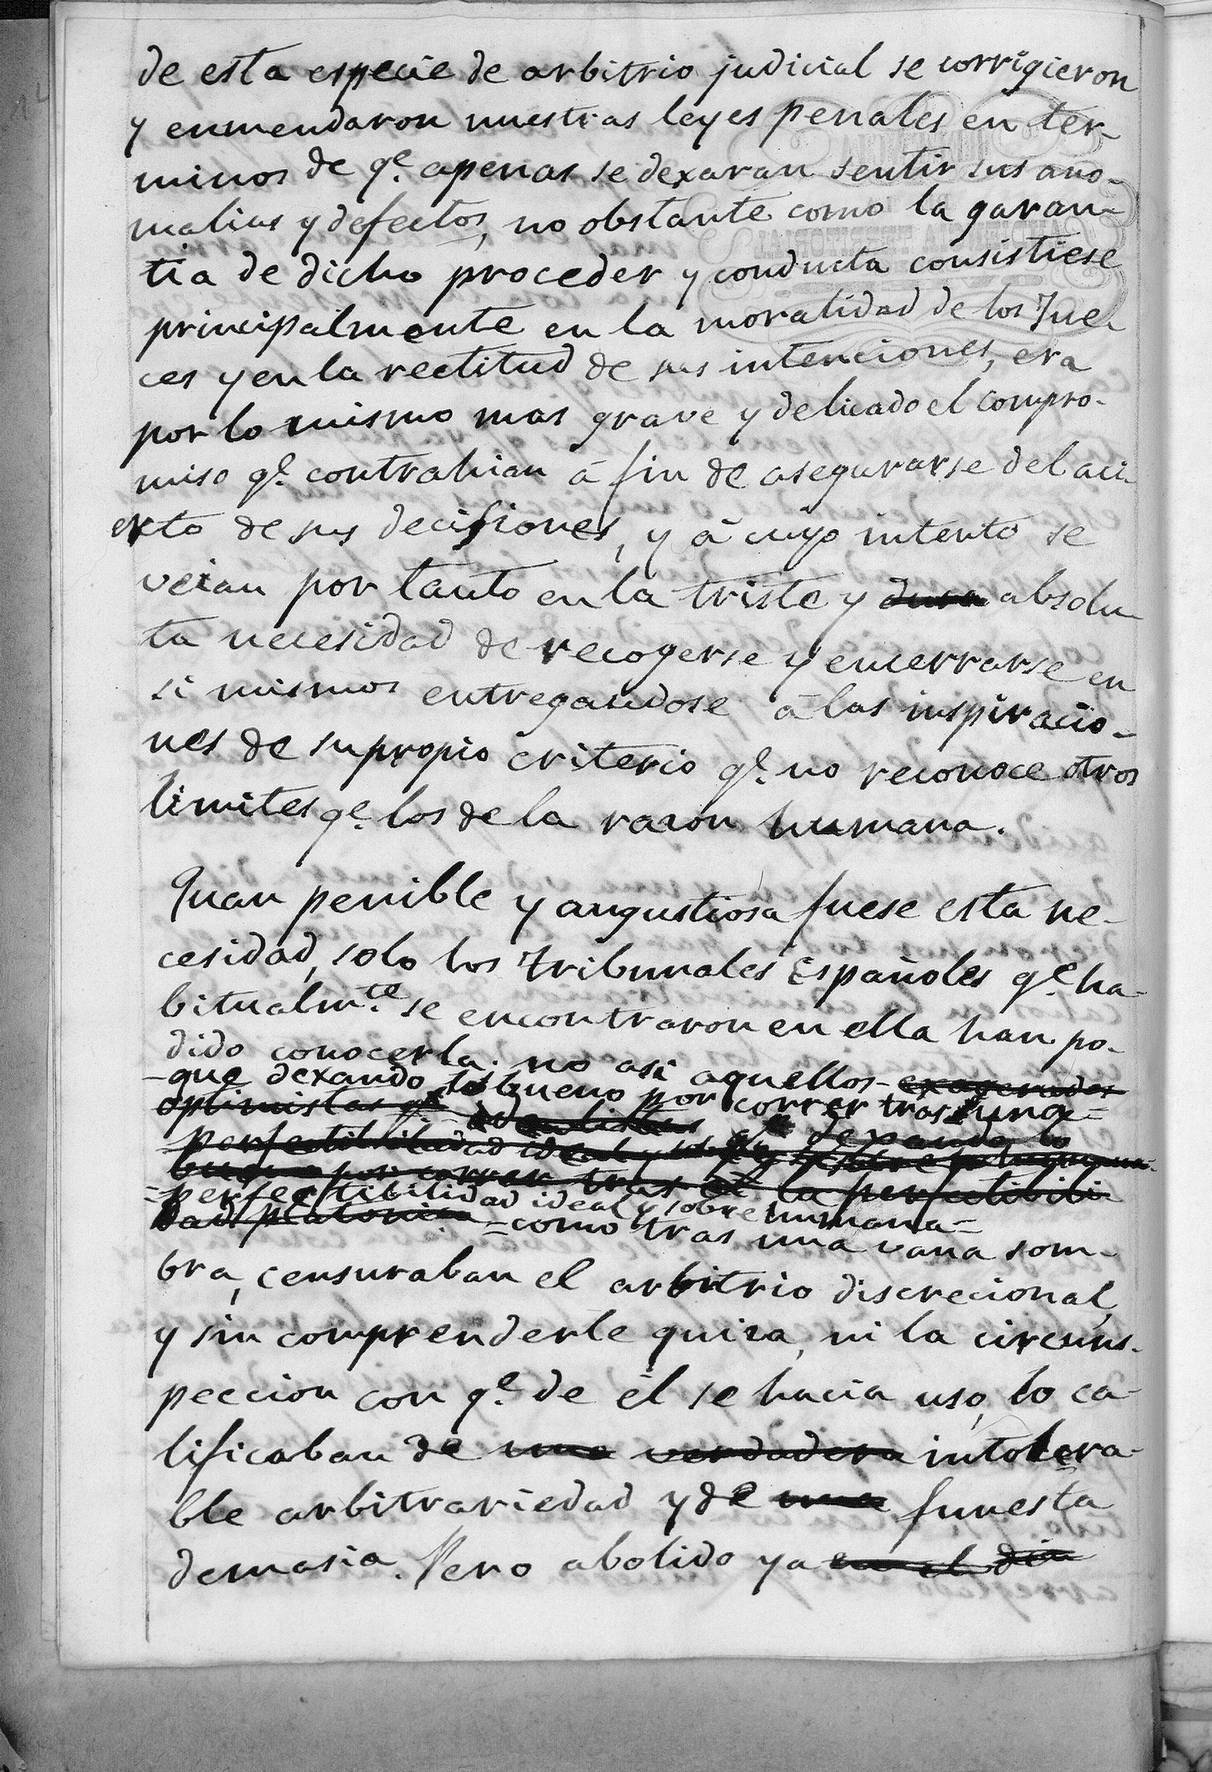 de esta especie de arbitrio judicial se corrigieron
y enmendaron nuestras leyes penales en ter-
minos de q.e apenas se dexaran sentir sus ano-
malias y defectos, no obstante como la garan-
tia de dicho proceder y conducta consistiese
principalmente en la moralidad de los Jue-
ces y en la rectitud de sus intenciones, era
por lo mismo mas grave y delicado el compro-
miso q.e contrahian á fin de asegurarse del aci-
erto de sus decisiones, y á cuyo intento se
veian por tanto en la triste y dura absolu-
ta necesidad de recogerse y encerrarse en
si mismos entregandose á las inspiracio-
nes de su propio criterio q.e no reconoce otros
limites q.e los de la razon humana.
Quan penible y angustiosa fuese esta ne-
cesidad, solo los Tribunales Españoles q.e ha-
bitualm.te se encontraron en ella han po-
dido conocerla: no asi aquellos exagerados
-que dexando lo bueno por correr tras una=
optimistas q.e idealistas q.e dexando lo
perfectibilidad ideal y sobrehumana
bueno por correr tras de la perfectibili-
=perfectibilidad ideal y sobrehumana=
dad platonica =como tras una vana som-
bra, censuraban el arbitrio discrecional,
y sin comprenderle quiza, ni la circuns-
peccion con q.e de él se hacia uso, lo ca-
lificaban de una verdadera intolera-
ble arbitrariedad y de una funesta
demasia. Pero abolido ya en el dia